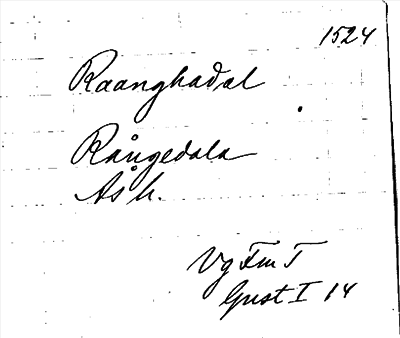 1524
Raanghadal
Rångedala
Ås h.
Vg Fm T
Gust I 14